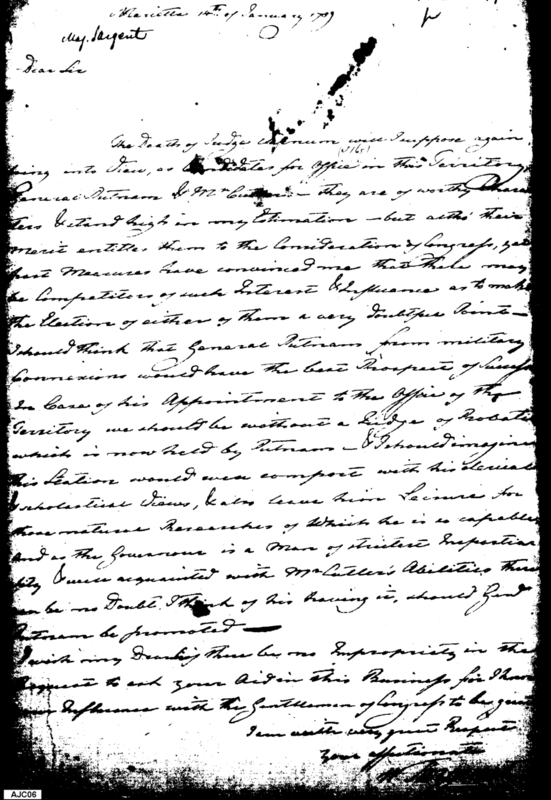 Marietta 14th of January 1789
Maj. Sargent
Dear Sir
The Death of Judge will I suppose again
bring into View, as Candidates for Office in this Territory
General Putnam & Mr Cutler - they are of worthy Charac
ters & stand high in my Estimation - but altho their
Merit entitles them to the Consideration of Congress, yet
past Measures have convinced me that there may
be Competitors of such Interest & Influence as to make
the Election of either of them a very doubtful Point -
I should think that General Putnam from military
Connexions would have the best Prospect of Success
In Case of his Appointment to the Office of the
Territory we should be without a Judge of Probate
which is now held by Putnam - & I should imagine
this Station would well comport with his clerical
& scholastick Views, & also leave him Leisure for
those natural Researches of Which he is so capable,
and as the Governour is a Man of strictest Impartia
lity & well acquainted with Mr Cutler's Abilities there
can be no Doubt I think of his having it, should Genl
Putnam be promoted -
I wish my Dear if there be no Impropriety in the
Request to ask your Aid in this Business for I know
your Influence with the Gentlemen of Congress to be great
I am with very great Respect
Your affectionate
W
AJC06